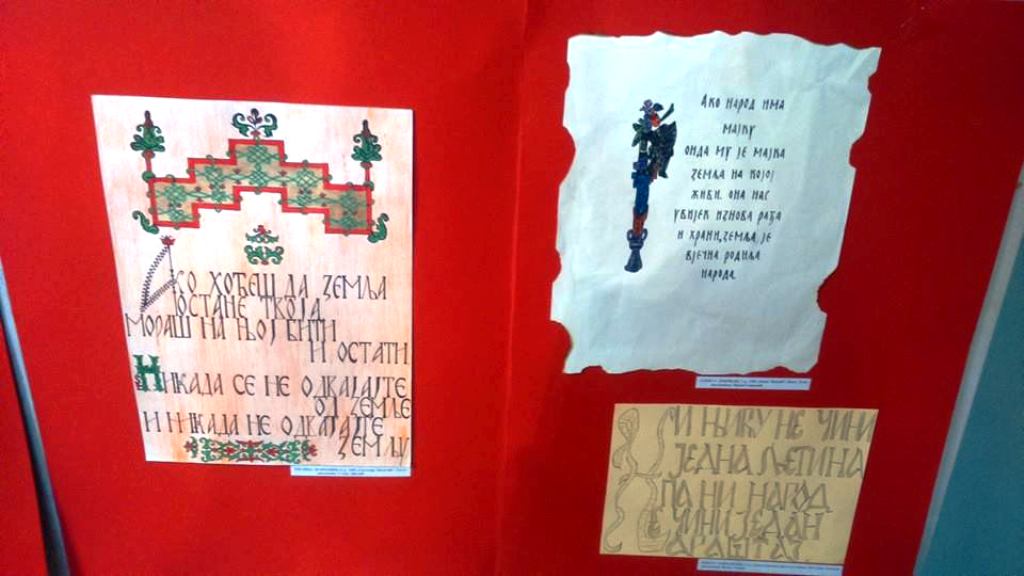 Ако хоћеш да земља
остане твоја
мораш на њој бити
и остати
Никада се не одвајајте
од земље
и никада не одвајајте
земљу
Ако народ има
мајку
онда му је мајка
земља на којој
живи. она нас
увијек изнова рађа
и храни, земља, је
вјечна родиља
народа.
и њиву не чини
једна љетина
па ни народ
један
нараштај